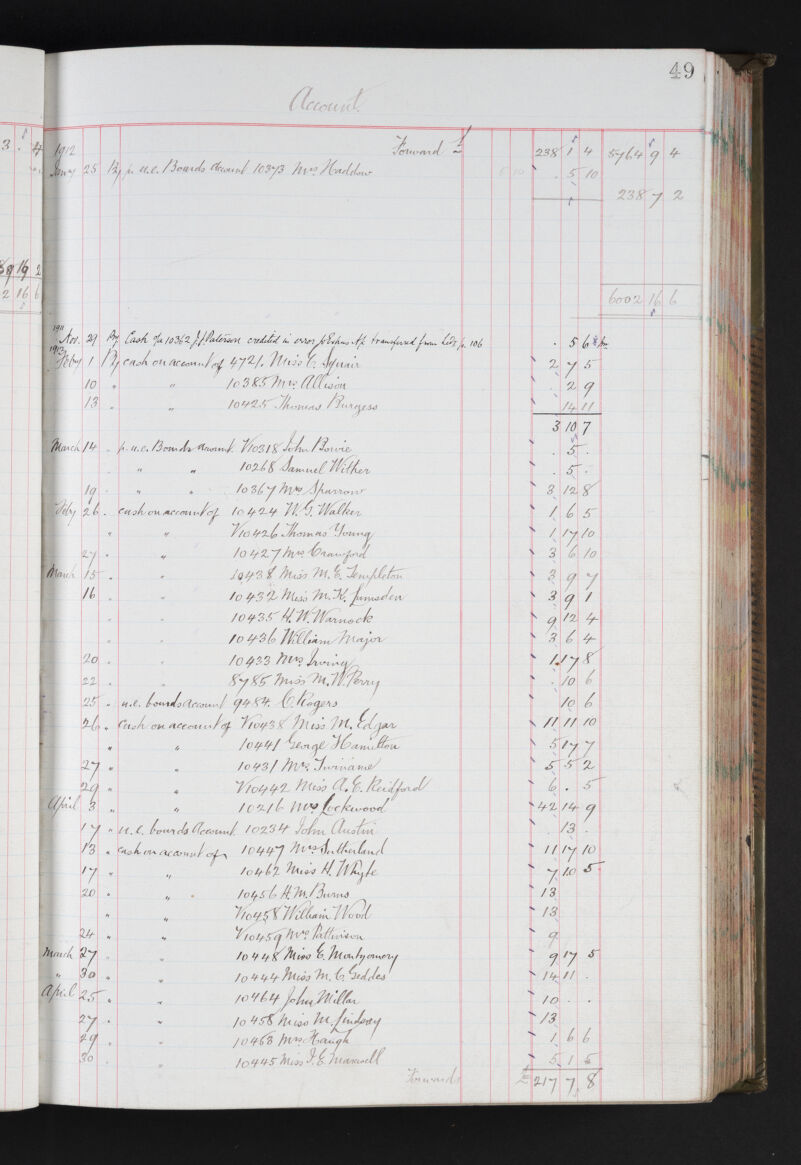 49
Account.
3 . 4
1912 Forward £ 238 1 4 5764 9 4
Jany 25 By p. u.e. Bounds Account 10373 Mrs Haddow . 5 10
238 7 2
19 2
2 16 6
6002 16 6
1911 Nov. 29 By Cash 10362 Paterson credited in error transferred from p. 106 . 5 6
Feby 1 By cash on account of 4721. Miss C. Squair 2 7 5
10 " " 10385 Mrs Allison . 2 9
13 " " 10425 Thomas Burgess 14 11
3 10 7
March 14 . p. u.e. Bounds Account V10318 John Bowie . 5 .
. " " 10268 Samuel Wither . 5 .
19 . " " 10367 Mrs Sparrow 3 12 8
Feby 26 . cash on account of 10424 W. J. Walker 1 6 5
" " V10426 Thomas Young 1 17 10
27 . " 10427 Mrs Crawford 3 6 10
March 15 . " 10438 Miss M. E. Templeton 3 9 7
16 . " 10432 Miss M. K. Lumsden 3 9 1
. . 10435 H. W. Warnock 9 12 4
. . 10436 William Major 3 6 4
20 . . 10433 Mrs Irving 1 17 8
22 . . 8785 Miss M. W. Perry . 10 6
25 . u.e. bounds account 9484. C. Rogers 10 6
26 . cash on account of V10438 Miss M. Edgar 11 11 10
" " 10441 George Hamilton 5 17 7
27 " " 10431 Mrs Twiname 5 5 2
29 " " V10442 Miss A. E. Reidford 6 . 5
April 3 " " 10216 Mrs Lockwood 42 14 9
17 " u.e. bounds Account 10234 John Austin . 13 .
13 . cash on account of 10447 Mrs Sutherland 11 17 10
17 " " 10462 Miss H. Whyte 7 10 5
20 . " . 10456 H. M. Burns 13
" " V10458 William Wood 13
24 " " V10459 Mrs Pattinson 9
March 27 . " 10448 Miss E. Montgomery 9 17 5
" 30 . " 10444 Miss M. C. Geddes 14 11 .
April 25 " " 10464 John Millar 10 . .
27 . " 10458 Miss M. Lindsay 13
29 " " 10463 Mrs Haugh 1 6 6
30 . " 10445 Miss J. E. Maxwell 5 1 6
Forward £ 217 7 8